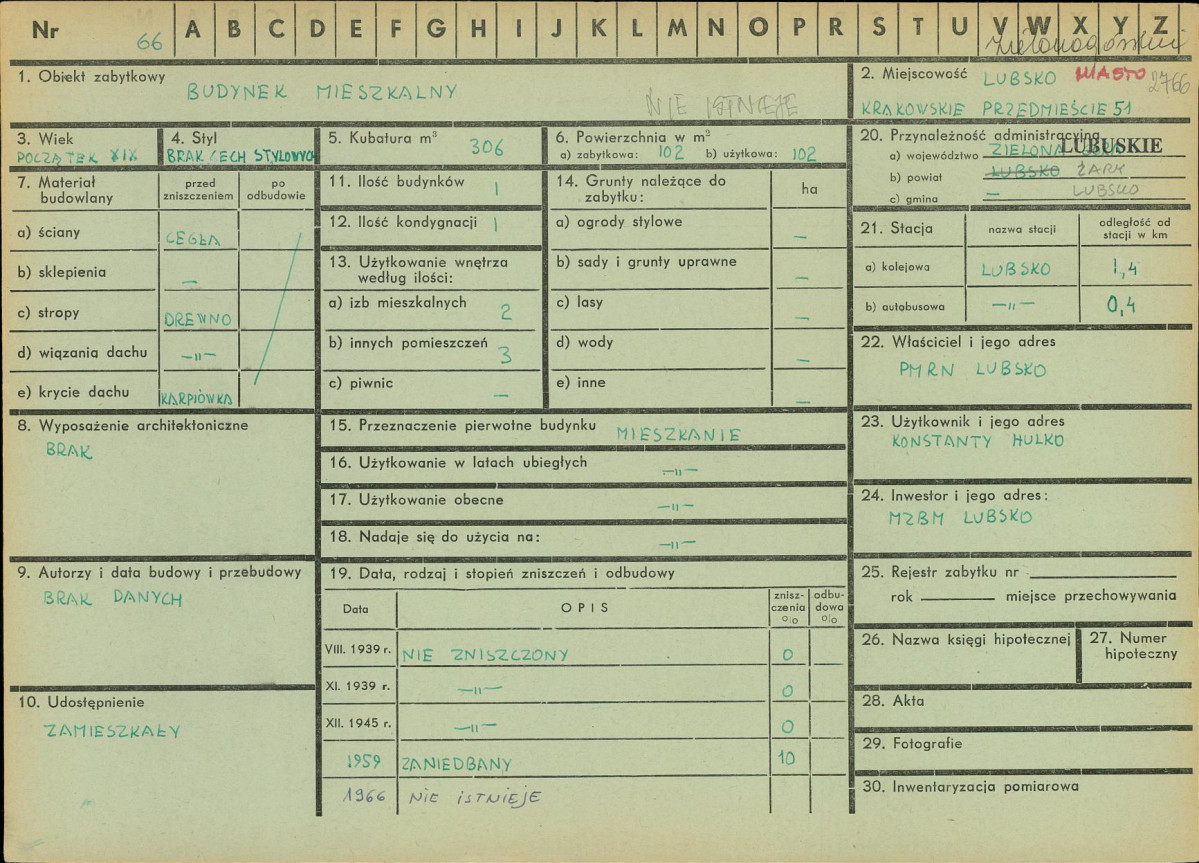 Nr 66 A B C D E F G H I J K L M N O P R S T U V W X Y Z
zielonogórskie
1. Obiekt zabytkowy
BUDYNEK MIESZKALNY
NIE ISTNIEJE
2. Miejscowość LUBSKO MIASTO 2766
KRAKOWSKIE PRZEDMIEŚCIE 51
3. Wiek
POCZĄTEK XIX
4. Styl
BRAK CECH STYLOWYCH
5. Kubatura m³ 306
6. Powierzchnia w m²
a) zabytkowa: 102 b) użytkowa: 102
20. Przynależność administracyjna
a) województwo ZIELONA LUBUSKIE
b) powiat LUBSKO ŻARY
c) gmina — LUBSKO
7. Materiał budowlany
przed zniszczeniem
po odbudowie
a) ściany CEGŁA
b) sklepienia —
c) stropy DREWNO
d) wiązania dachu —"—
e) krycie dachu KARPIÓWKA
11. Ilość budynków 1
12. Ilość kondygnacji 1
13. Użytkowanie wnętrza
według ilości:
a) izb mieszkalnych 2
b) innych pomieszczeń 3
c) piwnic —
14. Grunty należące do
zabytku: ha
a) ogrody stylowe —
b) sady i grunty uprawne —
c) lasy —
d) wody —
e) inne —
21. Stacja
nazwa stacji
odległość od
stacji w km
a) kolejowa LUBSKO 1,4
b) autobusowa —"— 0,4
22. Właściciel i jego adres
PMRN LUBSKO
8. Wyposażenie architektoniczne
BRAK
15. Przeznaczenie pierwotne budynku MIESZKANIE
16. Użytkowanie w latach ubiegłych —"—
17. Użytkowanie obecne —"—
18. Nadaje się do użycia na: —"—
23. Użytkownik i jego adres
KONSTANTY HULKO
24. Inwestor i jego adres:
MZBM LUBSKO
9. Autorzy i data budowy i przebudowy
BRAK DANYCH
10. Udostępnienie
ZAMIESZKAŁY
19. Data, rodzaj i stopień zniszczeń i odbudowy
Data
OPIS
znisz-
czenia
o|o
odbu-
dowa
o|o
VIII. 1939 r. NIE ZNISZCZONY 0
XI. 1939 r. —"— 0
XII. 1945 r. —"— 0
1959 ZANIEDBANY 10
1966 NIE ISTNIEJE
25. Rejestr zabytku nr
rok miejsce przechowywania
26. Nazwa księgi hipotecznej
27. Numer
hipoteczny
28. Akta
29. Fotografie
30. Inwentaryzacja pomiarowa